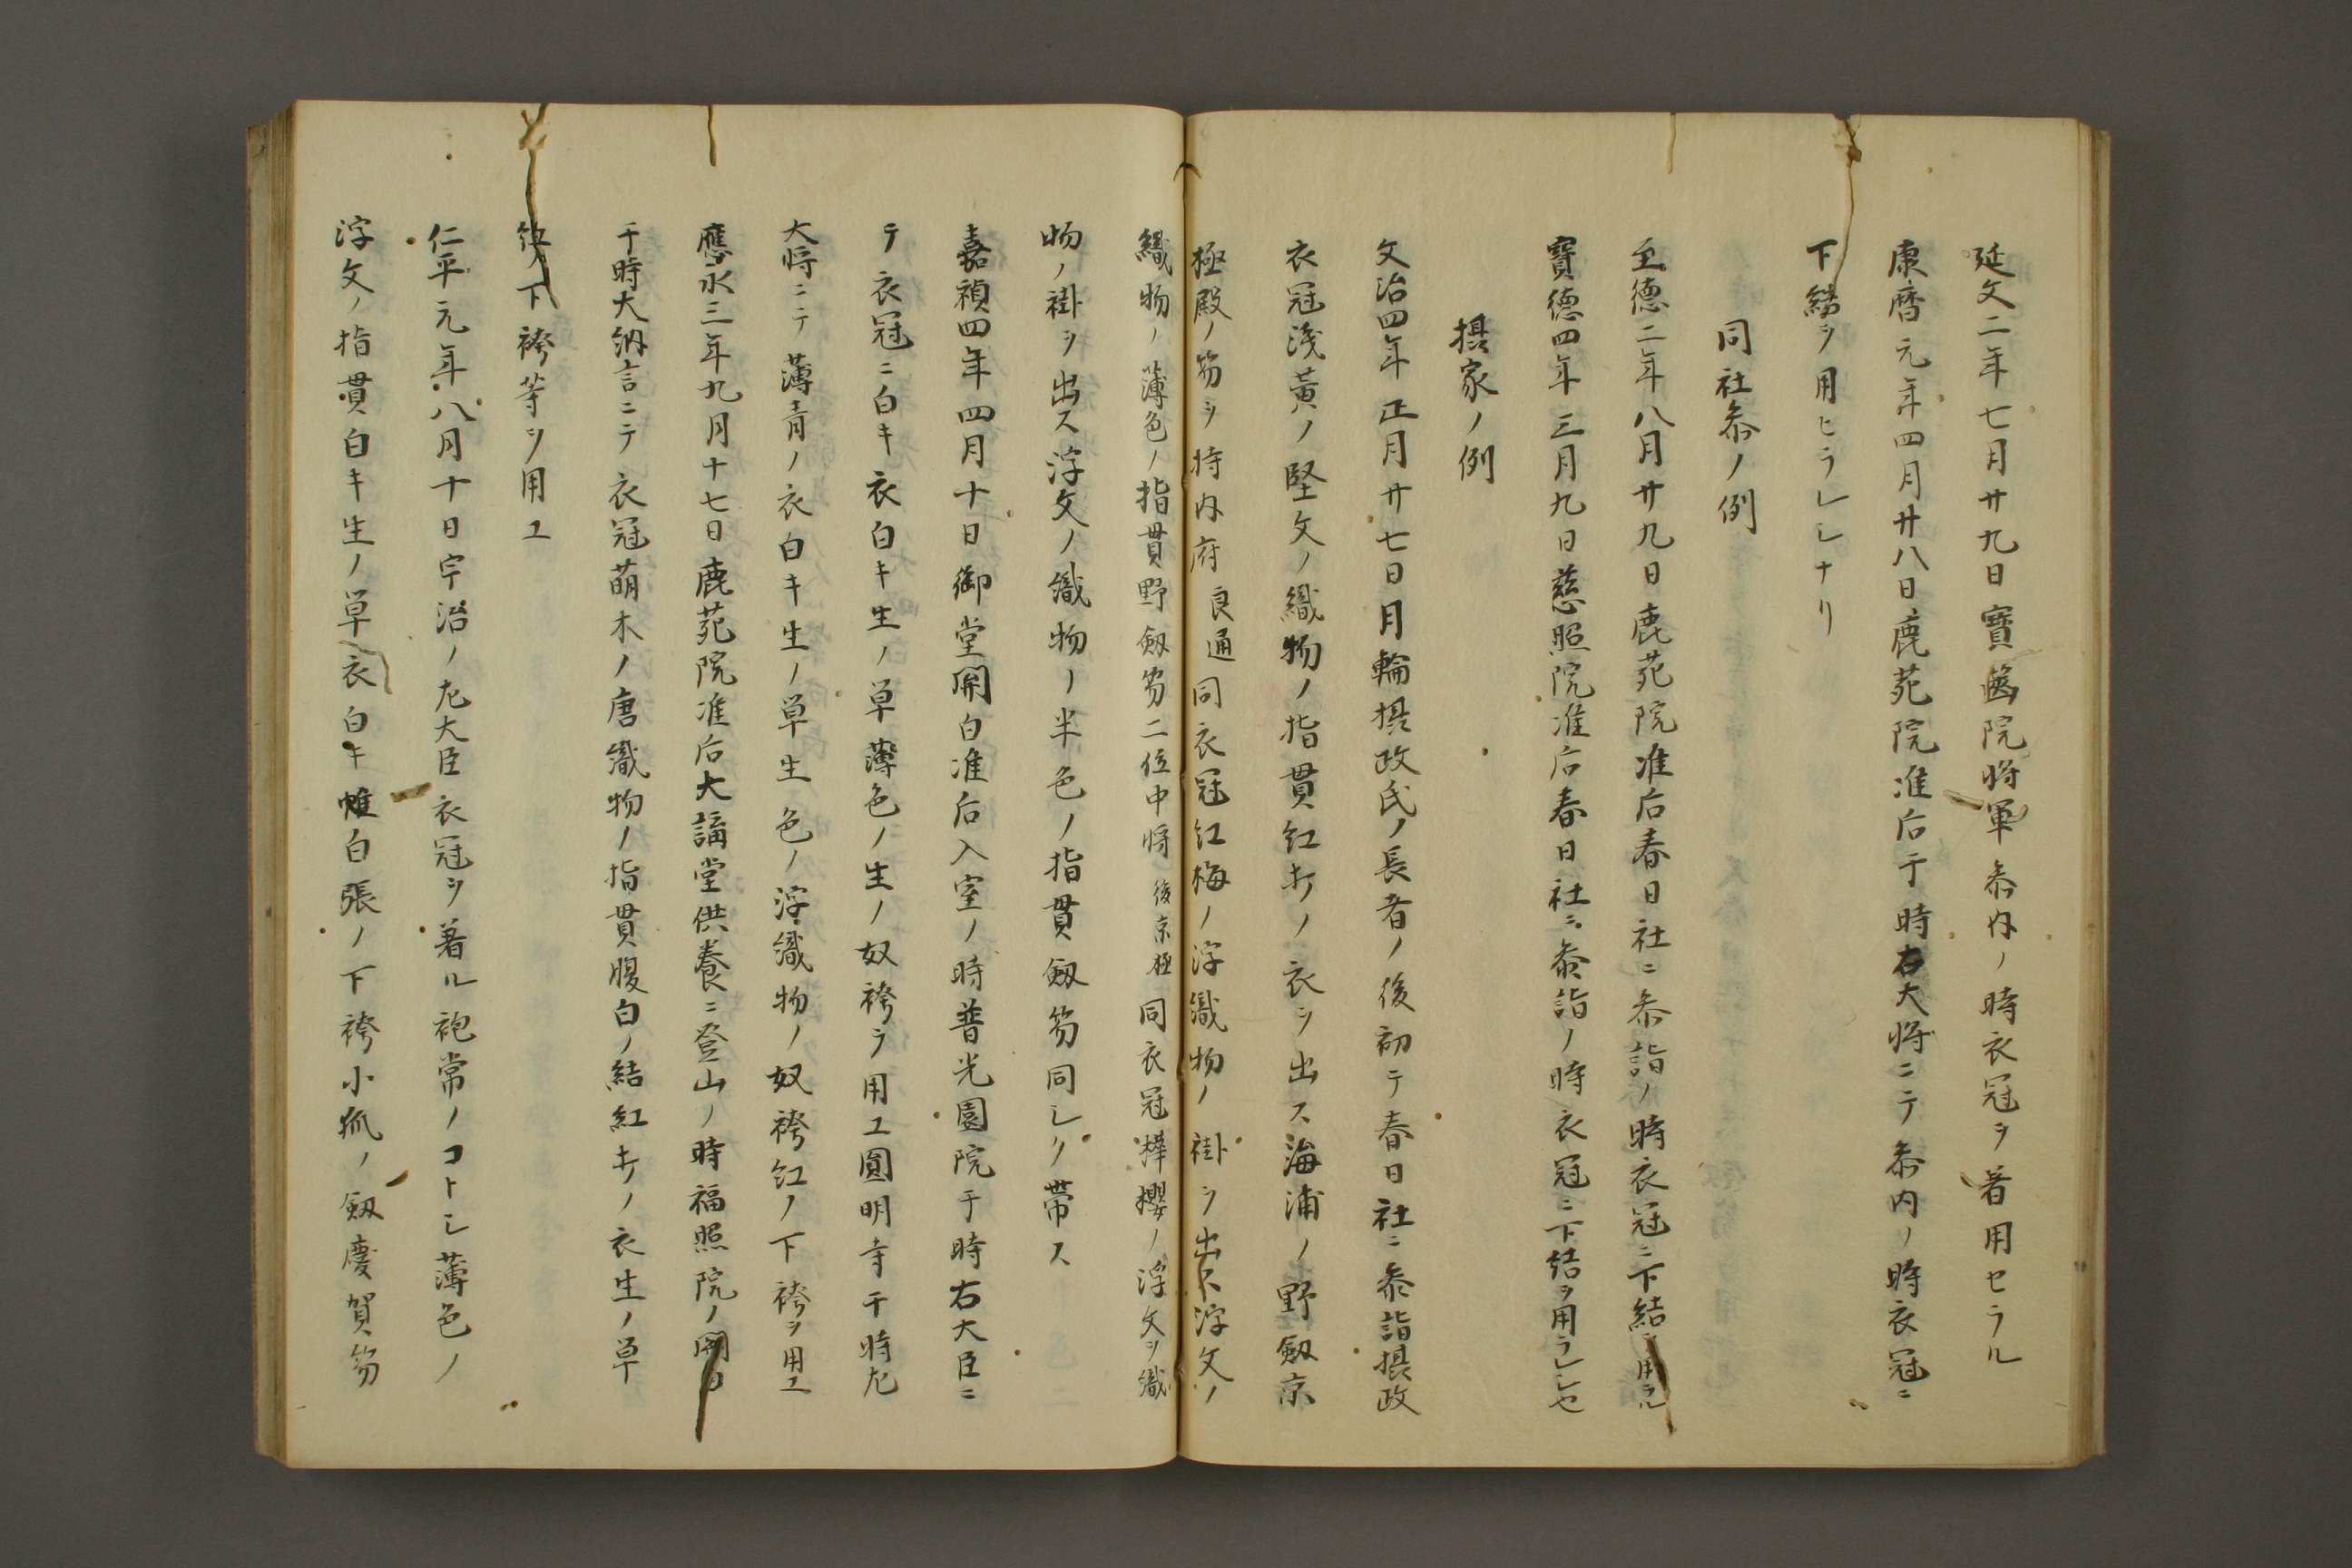 延文二年七月廿九日寶篋院将軍参内ノ時衣冠ヲ着用セラル
康暦元年四月廿八日鹿苑院准后于時右大将ニテ参内ノ時衣冠ニ
下結ヲ用ヒラレシナリ
同社参ノ例
至徳二年八月廿九日鹿苑院准后春日社ニ参詣ノ時衣冠ニ下結ヲ用ラル
寶徳四年三月九日慈照院准后春日社ニ参詣ノ時衣冠ニ下結ヲ用ラレシ也
摂家ノ例
文治四年正月廿七日月輪摂政氏ノ長者ノ後初テ春日社ニ参詣摂政
衣冠浅黄ノ堅文ノ織物ノ指貫紅キノ衣ヲ出ス海浦ノ野劔京
極殿ノ笏ヲ持内府良通同衣冠紅梅ノ浮織物ノ褂ヲ出ス浮文ノ
織物ノ薄色ノ指貫野劔笏二位中将後京極同衣冠樺櫻ノ浮文ヲ織
物ノ褂ヲ出ス浮文ノ織物ノ半色ノ指貫劔笏同シク帯ス
嘉禎四年四月十日御堂関白准后入室ノ時普光園院于時右大臣ニ
テ衣冠ニ白キ衣白キ生ノ単薄色ノ生ノ奴袴ヲ用ユ圓明寺于時左
大将ニテ薄青ノ衣白キ生ノ単生色ノ浮織物ノ奴袴紅ノ下袴ヲ用ユ
應永三年九月十七日鹿苑院准后大講堂供養ニ登山ノ時福照院ノ関白
于時大納言ニテ衣冠萌木ノ唐織物ノ指貫腹白ノ結紅キノ衣生ノ単
ノ下袴等ヲ用ユ
仁平元年八月十日宇治ノ左大臣衣冠ヲ着ル袍常ノコトシ薄色ノ
浮文ノ指貫白キ生ノ単衣白キ帷白張ノ下袴小狐ノ劔慶賀笏